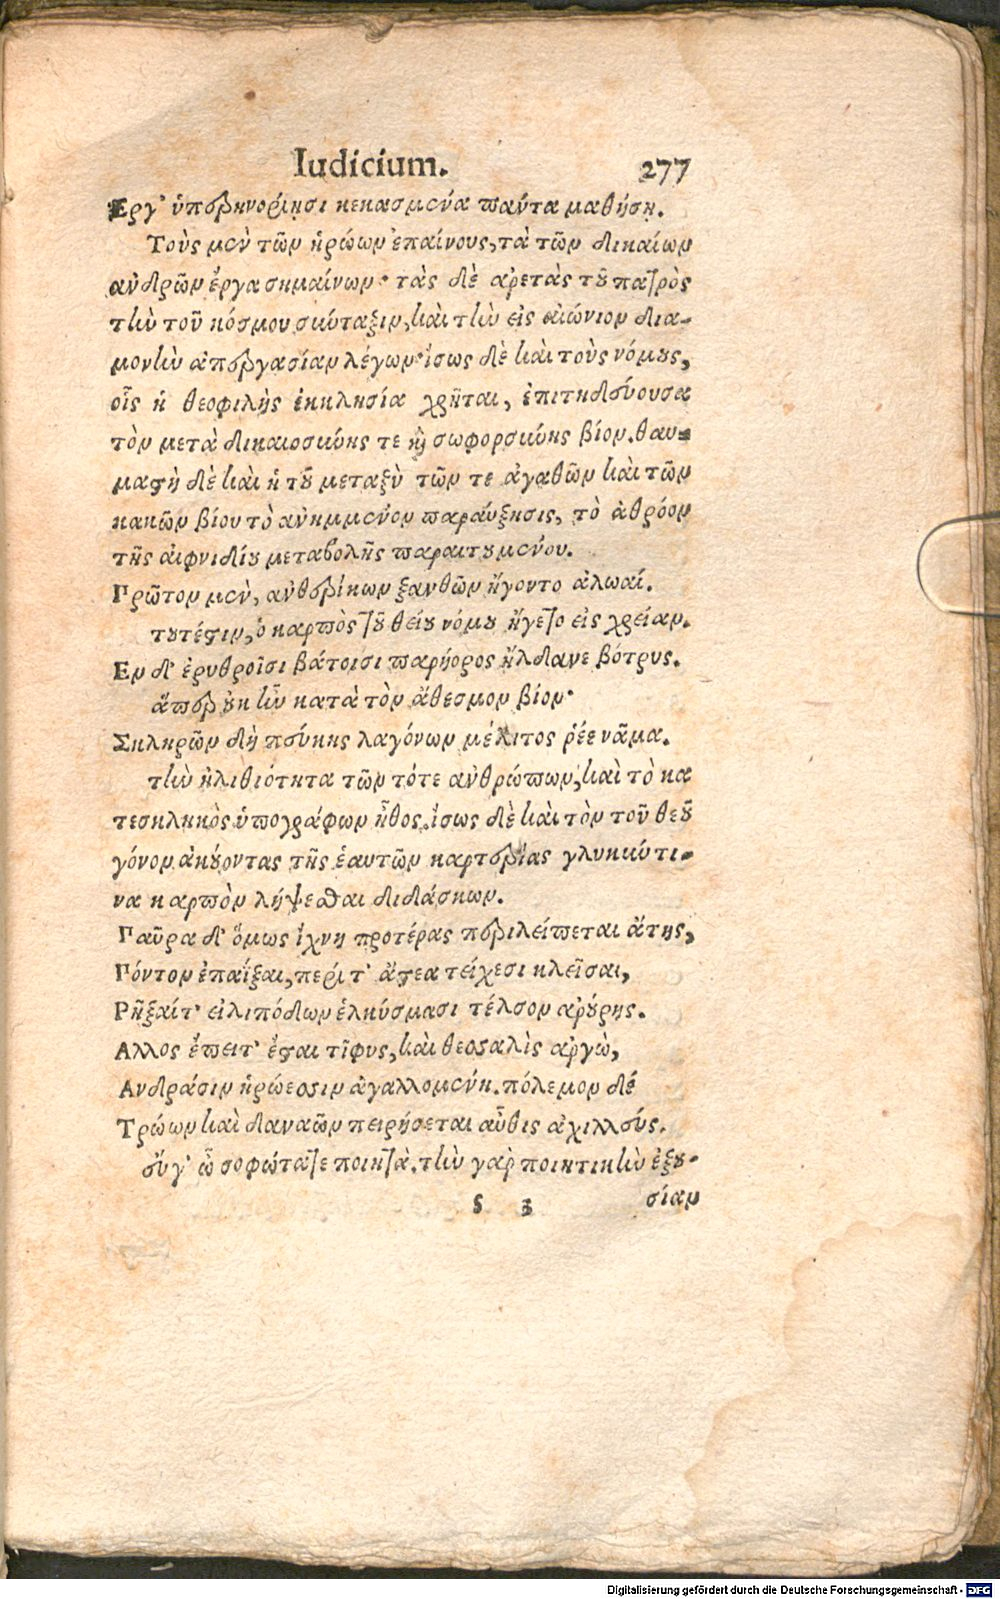 Iudicium. 277
Εργ' ὑπερηνορίῃσι κεκασμένα πάντα μαθήσῃ.
Τοὺς μὲν τῶν ἡρώων ἐπαίνους, τὰ τῶν δικαίων
ἀνδρῶν ἔργα σημαίνων· τὰς δὲ ἀρετὰς τοῦ πατρὸς
τὴν τοῦ κόσμου σύνταξιν, καὶ τὴν εἰς αἰώνιον δια-
μονὴν ἀπεργασίαν λέγων· ἴσως δὲ καὶ τοὺς νόμους,
οἷς ἡ θεοφιλὴς ἐκκλησία χρῆται, ἐπιτηδεύουσα
τὸν μετὰ δικαιοσύνης τε καὶ σωφορσύνης βίον. θαυ-
μαστὴ δὲ καὶ ἡ τοῦ μεταξὺ τῶν τε ἀγαθῶν καὶ τῶν
κακῶν βίου τὸ ἀνημμένον παραύξησις, τὸ ἀθρόον
τῆς αἰφνιδίου μεταβολῆς παραιτουμένου.
Πρῶτον μὲν, ἀνθερίκων ξανθῶν ἤγοντο ἀλωαί.
τουτέστιν, ὁ καρπὸς τοῦ θείου νόμου ἤγετο εἰς χρείαν.
Εν δ' ἐρυθροῖσι βάτοισι παρήορος ἤλδανε βότρυς.
ἅπερ οὐκ ἦν κατὰ τὸν ἄθεσμον βίον·
Σκληρῶν δὴ πεύκης λαγόνων μέλιτος ῥέε νᾶμα.
τὴν ἠλιθιότητα τῶν τότε ἀνθρώπων, καὶ τὸ κα
τεσκληκὸς ὑπογράφων ἦθος. ἴσως δὲ καὶ τὸν τοῦ θεοῦ
γόνον ἀκούοντας τῆς ἑαυτῶν καρτερίας γλυκύν τι-
να καρπὸν λήψεσθαι διδάσκων.
Παῦρα δ' ὅμως ἴχνη προτέρας περιλείπεται ἄτης,
Πόντον ἐπαΐξαι, περί τ' ἄστεα τείχεσι κλεῖσαι,
Ρῆξαίτ' εἰλιπόδων ἑλκύσμασι τέλσον ἀρούρης.
Αλλος ἔπειτ' ἔσται τῖφυς, καὶ θεσσαλὶς ἀργὼ,
Ανδράσιν ἡρώεσσιν ἀγαλλομένη. πόλεμον δέ
Τρώων καὶ δαναῶν πειρήσεται αὖθις ἀχιλλεύς.
εὖγ' ὦ σοφώτατε ποιητά. τὴν γὰρ ποιητικὴν ἐξου-
s 3 σίαν
Digitalisierung gefördert durch die Deutsche Forschungsgemeinschaft - DFG